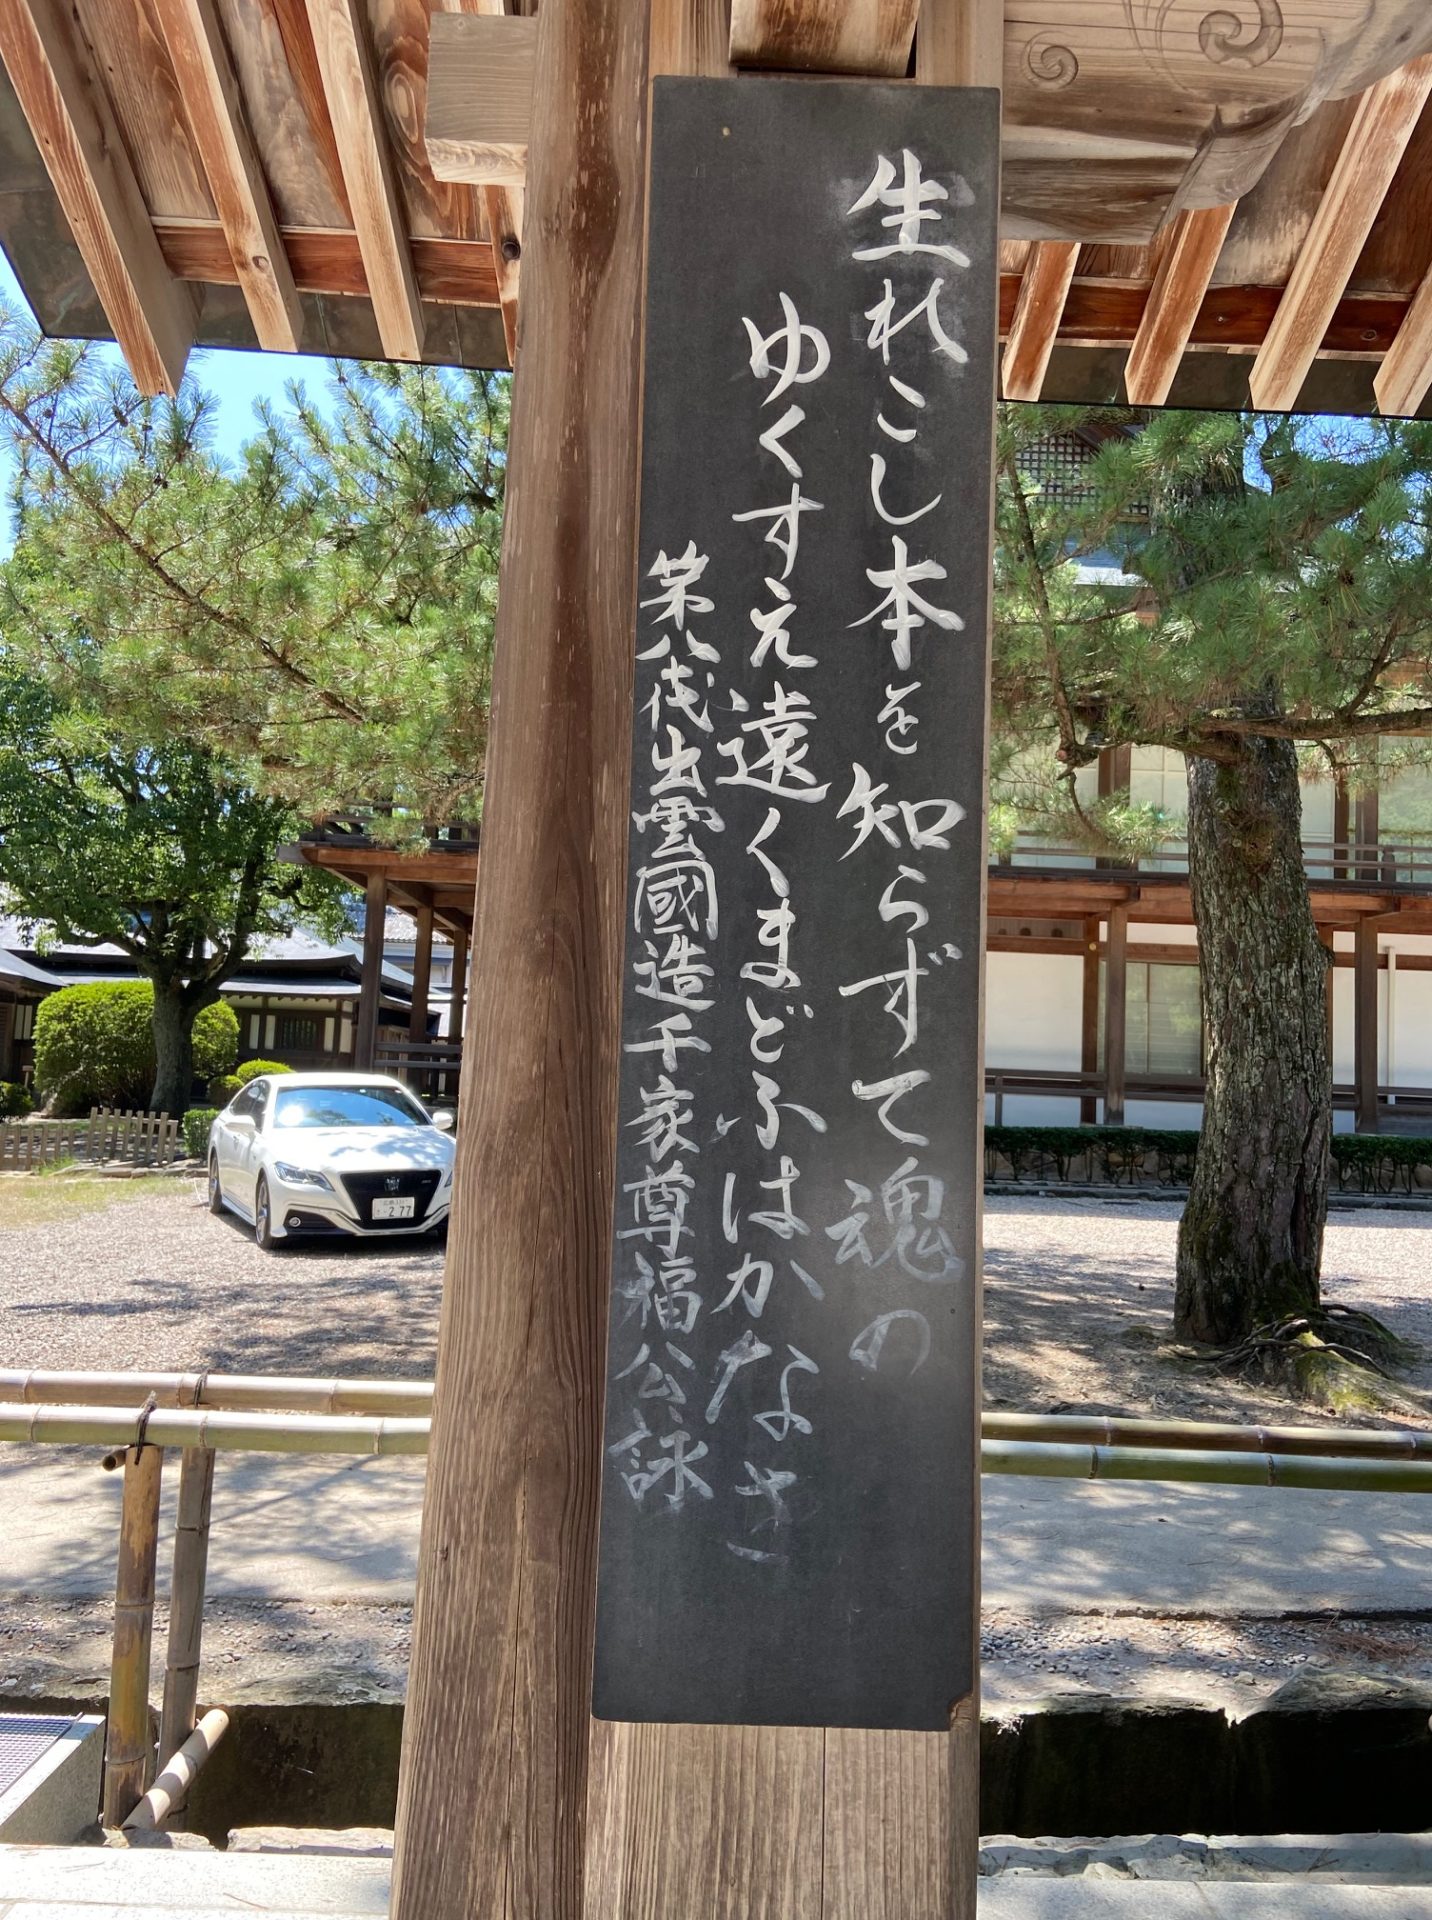 生れこし本を知らずて魂の
ゆくすえ遠くまどふはかなさ
第八代出雲國造千家尊福公詠
277